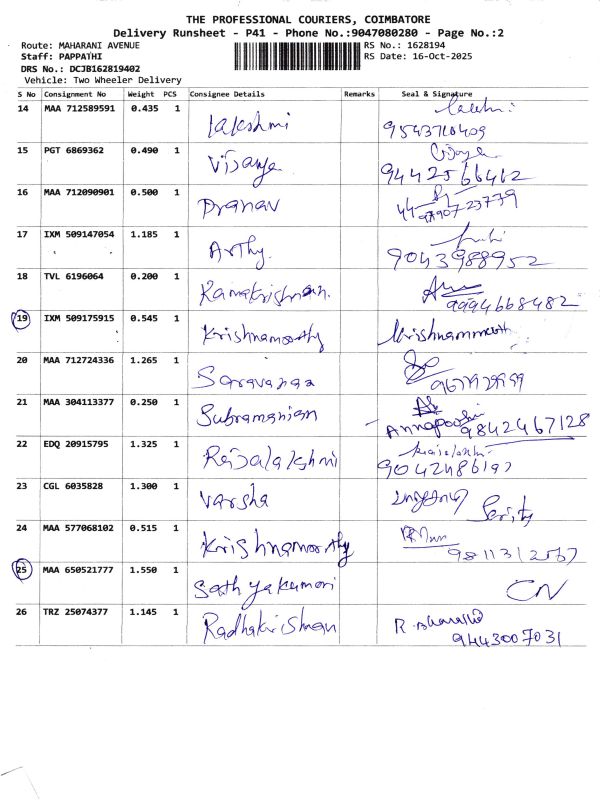 THE PROFESSIONAL COURIERS, COIMBATORE
Delivery Runsheet - P41 - Phone No.:9047080280 - Page No.:2
Route: MAHARANI AVENUE RS No.: 1628194
Staff: PAPPATHI RS Date: 16-Oct-2025
DRS No.: DCJB162819402
Vehicle: Two Wheeler Delivery
S No Consignment No Weight PCS Consignee Details Remarks Seal & Signature
14 MAA 712589591 0.435 1 Lakshmi
9543710409
15 PGT 6869362 0.490 1 Vijaya
9442566462
16 MAA 712090901 0.500 1 Pranav
17 IXM 509147054 1.185 1 Arthy
9043988952
18 TVL 6196064 0.200 1 Ramakrishnan
9994668482
19 IXM 509175915 0.545 1 Krishnamoorthy
20 MAA 712724336 1.265 1 Saravanaa
21 MAA 304113377 0.250 1 Subramanian
Annapoorni 9842467128
22 EDQ 20915795 1.325 1 Rajalakshmi
23 CGL 6035828 1.300 1 Varsha
24 MAA 577068102 0.515 1 Krishnamoorthy
25 MAA 650521777 1.550 1 Sathyakumari
CN
26 TRZ 25074377 1.145 1 Radhakrishnan
9443007031